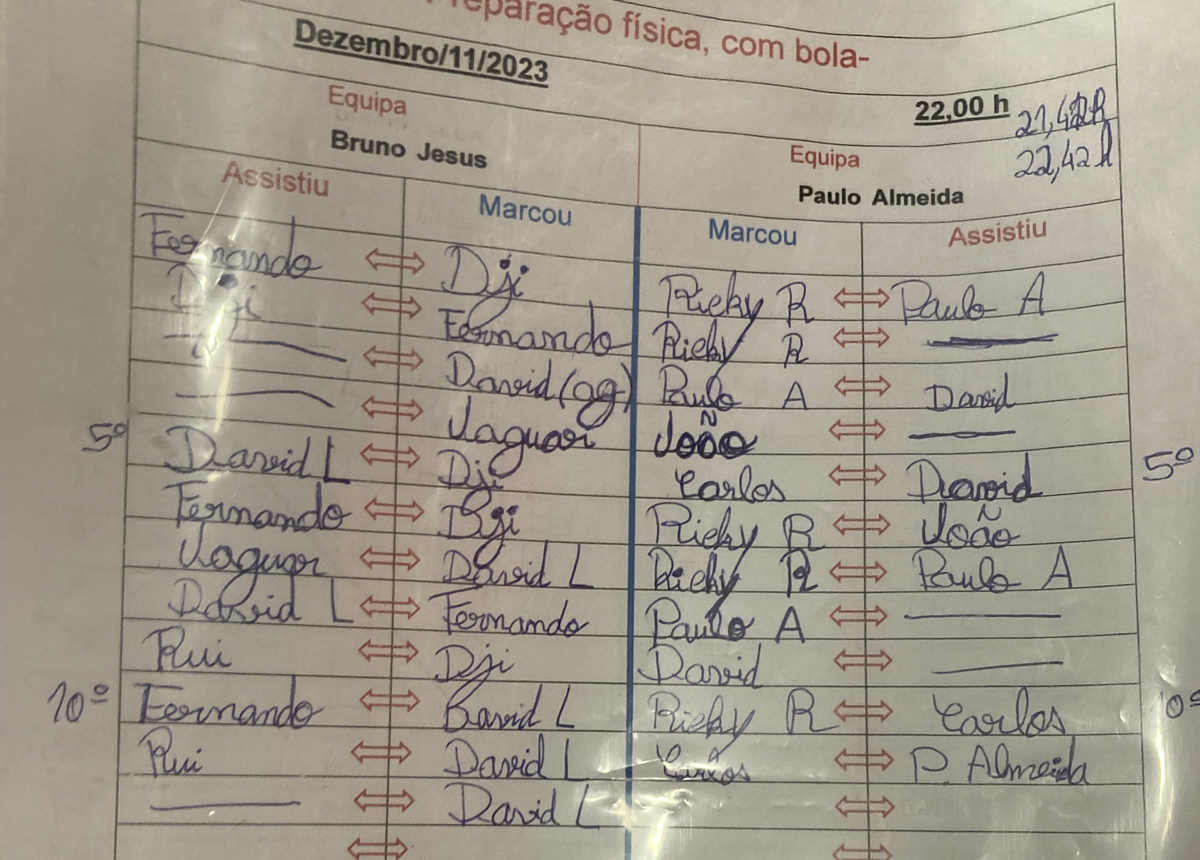 Preparação física, com bola-
Dezembro/11/2023
22,00 h 21,42h
22,42h
Equipa Equipa
Bruno Jesus Paulo Almeida
Assistiu Marcou Marcou Assistiu
Fernando ⇔ Dji Ricky R ⇔ Paulo A
Dji ⇔ Fernando Ricky R ⇔ —
— ⇔ David (ag) Paulo A ⇔ David
— ⇔ Jaguar João ⇔ —
5º David L ⇔ Dji Carlos ⇔ David 5º
Fernando ⇔ Dji Ricky R ⇔ João
Jaguar ⇔ David L Ricky R ⇔ Paulo A
David L ⇔ Fernando Paulo A ⇔ —
Rui ⇔ Dji David ⇔ —
10º Fernando ⇔ David L Ricky R ⇔ Carlos 10º
Rui ⇔ David L Carlos ⇔ P. Almeida
— ⇔ David L ⇔